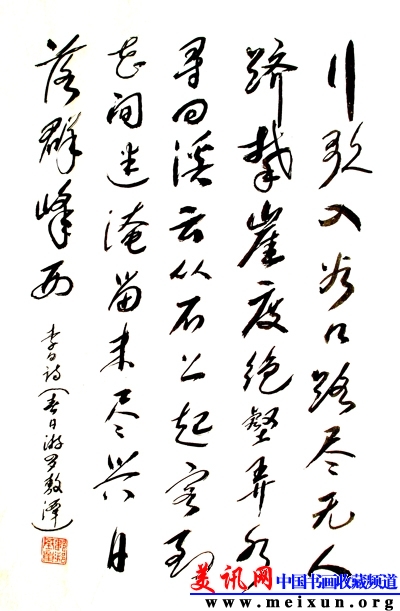 行歌入谷口路尽无人
跻攀崖度绝壑弄水
寻回溪云从石上起客到
花间迷淹留未尽兴日
落群峰西
李白诗《春日游罗敷潭》
美讯网 中国书画收藏频道
www.meixun.org